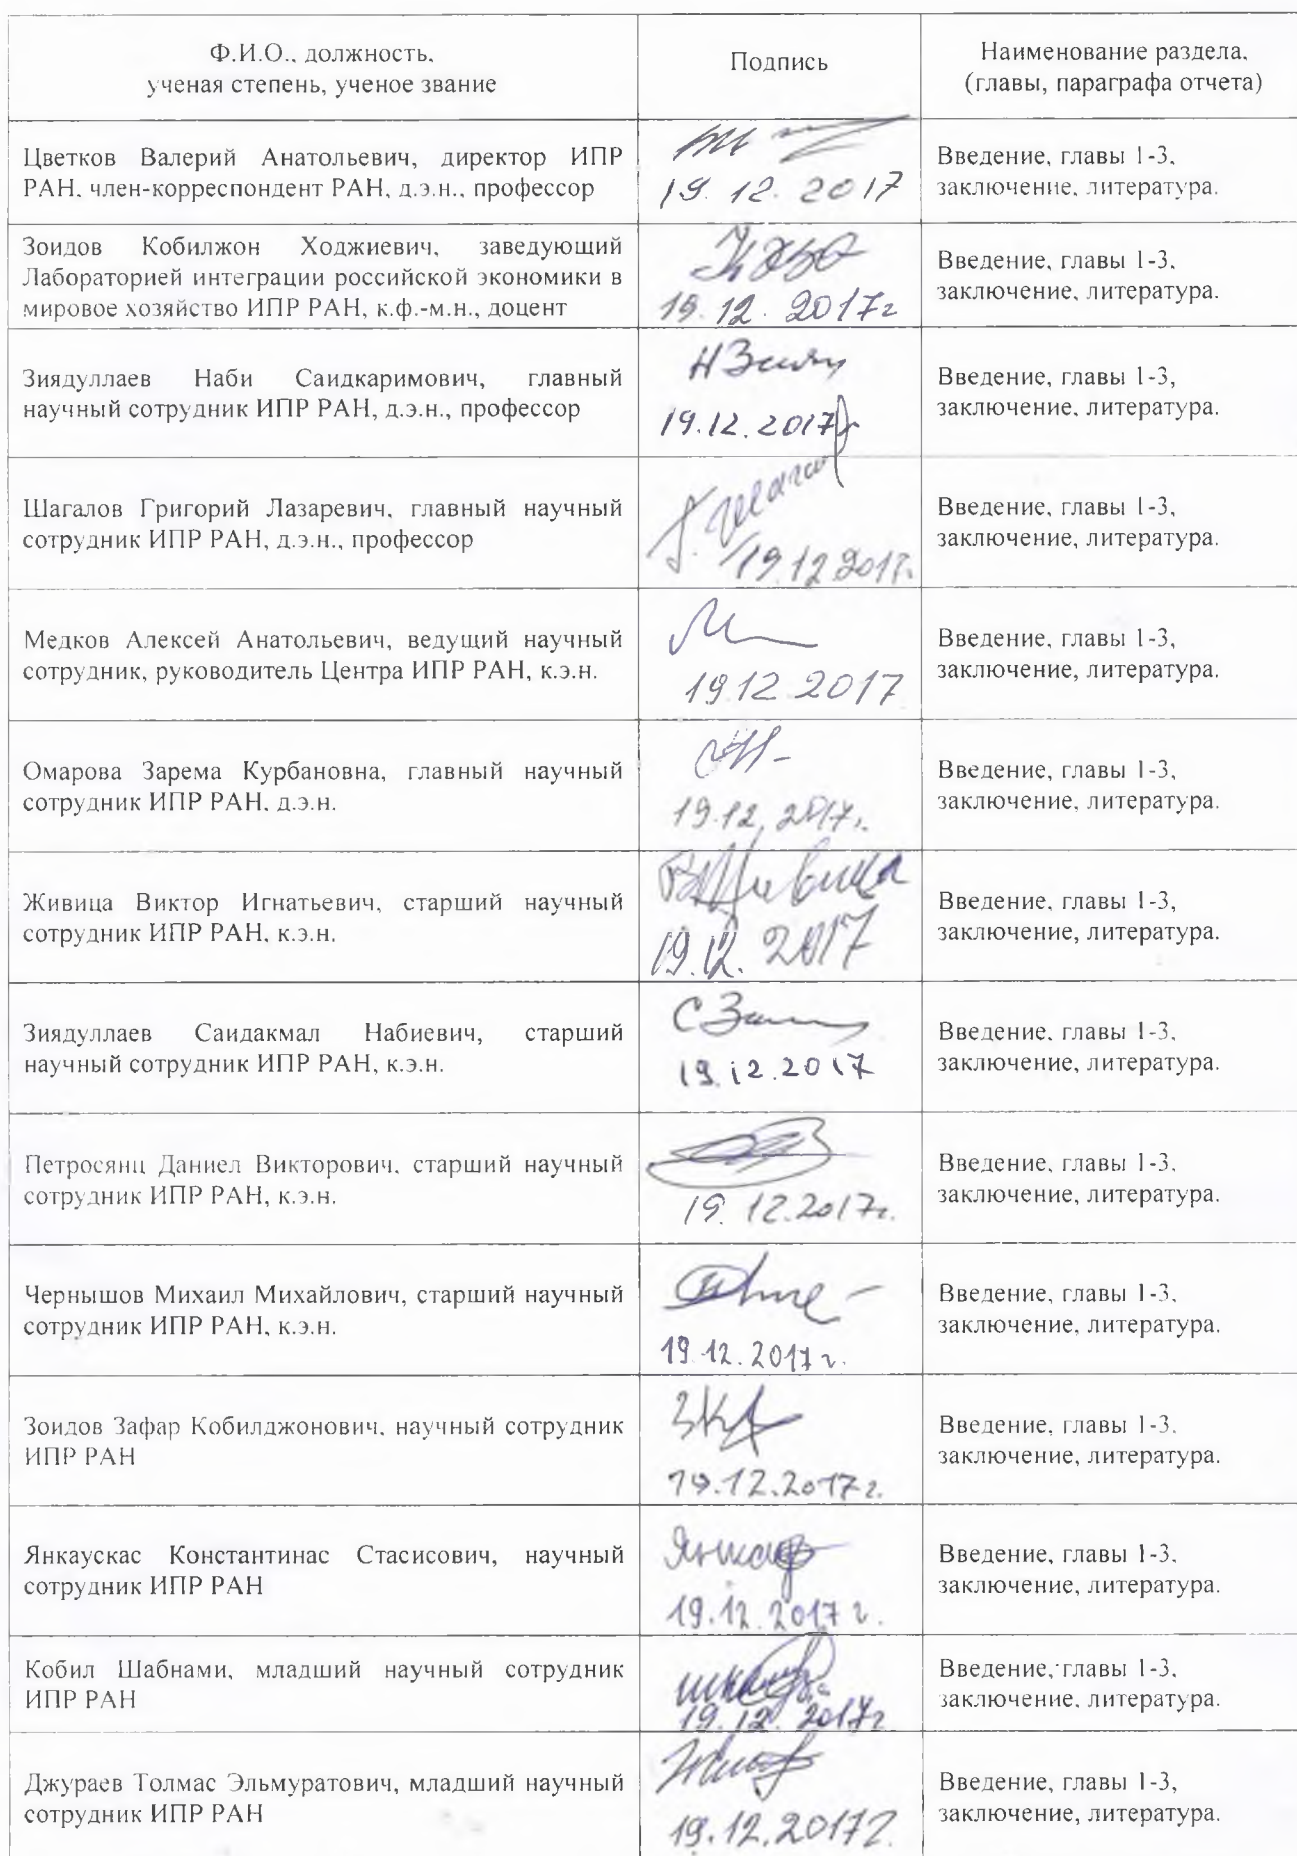 Ф.И.О., должность,
ученая степень, ученое звание
Подпись
Наименование раздела,
(главы, параграфа отчета)
Цветков Валерий Анатольевич, директор ИПР
РАН, член-корреспондент РАН, д.э.н., профессор
19. 12. 2017
Введение, главы 1-3,
заключение, литература.
Зоидов Кобилжон Ходжиевич, заведующий
Лабораторией интеграции российской экономики в
мировое хозяйство ИПР РАН, к.ф.-м.н., доцент
19. 12. 2017г
Введение, главы 1-3,
заключение, литература.
Зиядуллаев Наби Саидкаримович, главный
научный сотрудник ИПР РАН, д.э.н., профессор
19.12.2017г
Введение, главы 1-3,
заключение, литература.
Шагалов Григорий Лазаревич, главный научный
сотрудник ИПР РАН, д.э.н., профессор
19.12.2017г.
Введение, главы 1-3,
заключение, литература.
Медков Алексей Анатольевич, ведущий научный
сотрудник, руководитель Центра ИПР РАН, к.э.н.
19.12.2017
Введение, главы 1-3,
заключение, литература.
Омарова Зарема Курбановна, главный научный
сотрудник ИПР РАН, д.э.н.
19.12.2017г.
Введение, главы 1-3,
заключение, литература.
Живица Виктор Игнатьевич, старший научный
сотрудник ИПР РАН, к.э.н.
ВЖивица
19.12. 2017
Введение, главы 1-3,
заключение, литература.
Зиядуллаев Саидакмал Набиевич, старший
научный сотрудник ИПР РАН, к.э.н.
19.12.2017
Введение, главы 1-3,
заключение, литература.
Петросянц Даниел Викторович, старший научный
сотрудник ИПР РАН, к.э.н.
19. 12.2017г.
Введение, главы 1-3,
заключение, литература.
Чернышов Михаил Михайлович, старший научный
сотрудник ИПР РАН, к.э.н.
19.12.2017 г.
Введение, главы 1-3,
заключение, литература.
Зоидов Зафар Кобилджонович, научный сотрудник
ИПР РАН
19.12.2017 г.
Введение, главы 1-3,
заключение, литература.
Янкаускас Константинас Стасисович, научный
сотрудник ИПР РАН
19.12.2017 г.
Введение, главы 1-3,
заключение, литература.
Кобил Шабнами, младший научный сотрудник
ИПР РАН
19.12.2017г
Введение, главы 1-3,
заключение, литература.
Джураев Толмас Эльмуратович, младший научный
сотрудник ИПР РАН
19.12.2017г.
Введение, главы 1-3,
заключение, литература.